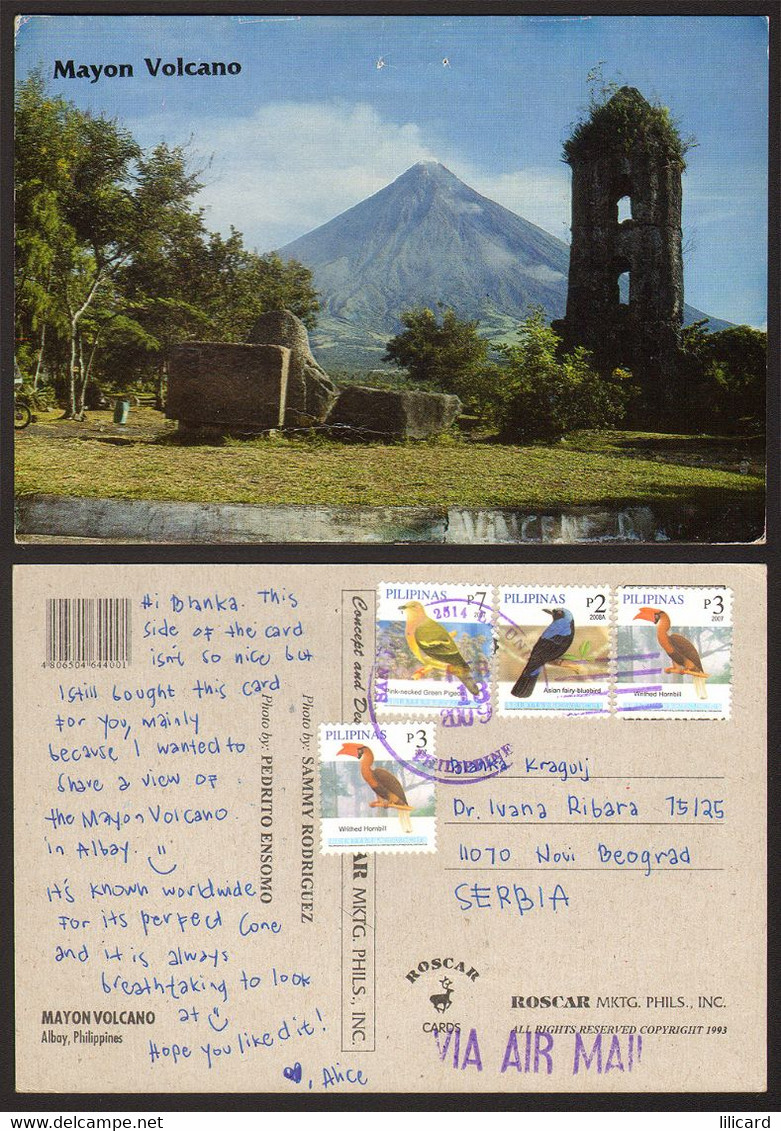 Mayon Volcano
VINCENT
4806504644001
Hi Blanka. This
side of the card
isn't so nice but
I still bought this card
for you, mainly
because I wanted to
share a view of
the Mayon Volcano
in Albay.
It's known worldwide
for its perfect cone
and it is always
breathtaking to look
at
Hope you liked it!
, Alice
MAYON VOLCANO
Albay, Philippines
Photo by: PEDRITO ENSOMO
Photo by: SAMMY RODRIGUEZ
Concept and
MKTG. PHILS., INC.
PILIPINAS 7
Pink-necked Green Pigeon
PILIPINAS P2
2008A
Asian fairy-bluebird
PILIPINAS P3
2007
Writhed Hornbill
P3
Writhed Hornbill
2514
2009
PHILIPPINE
Blanka Kragulj
Dr. Ivana Ribara 75/25
11070 Novi Beograd
SERBIA
ROSCAR
CARDS
ROSCAR MKTG. PHILS., INC.
ALL RIGHTS RESERVED COPYRIGHT 1993
VIA AIR MAIL
lilicard